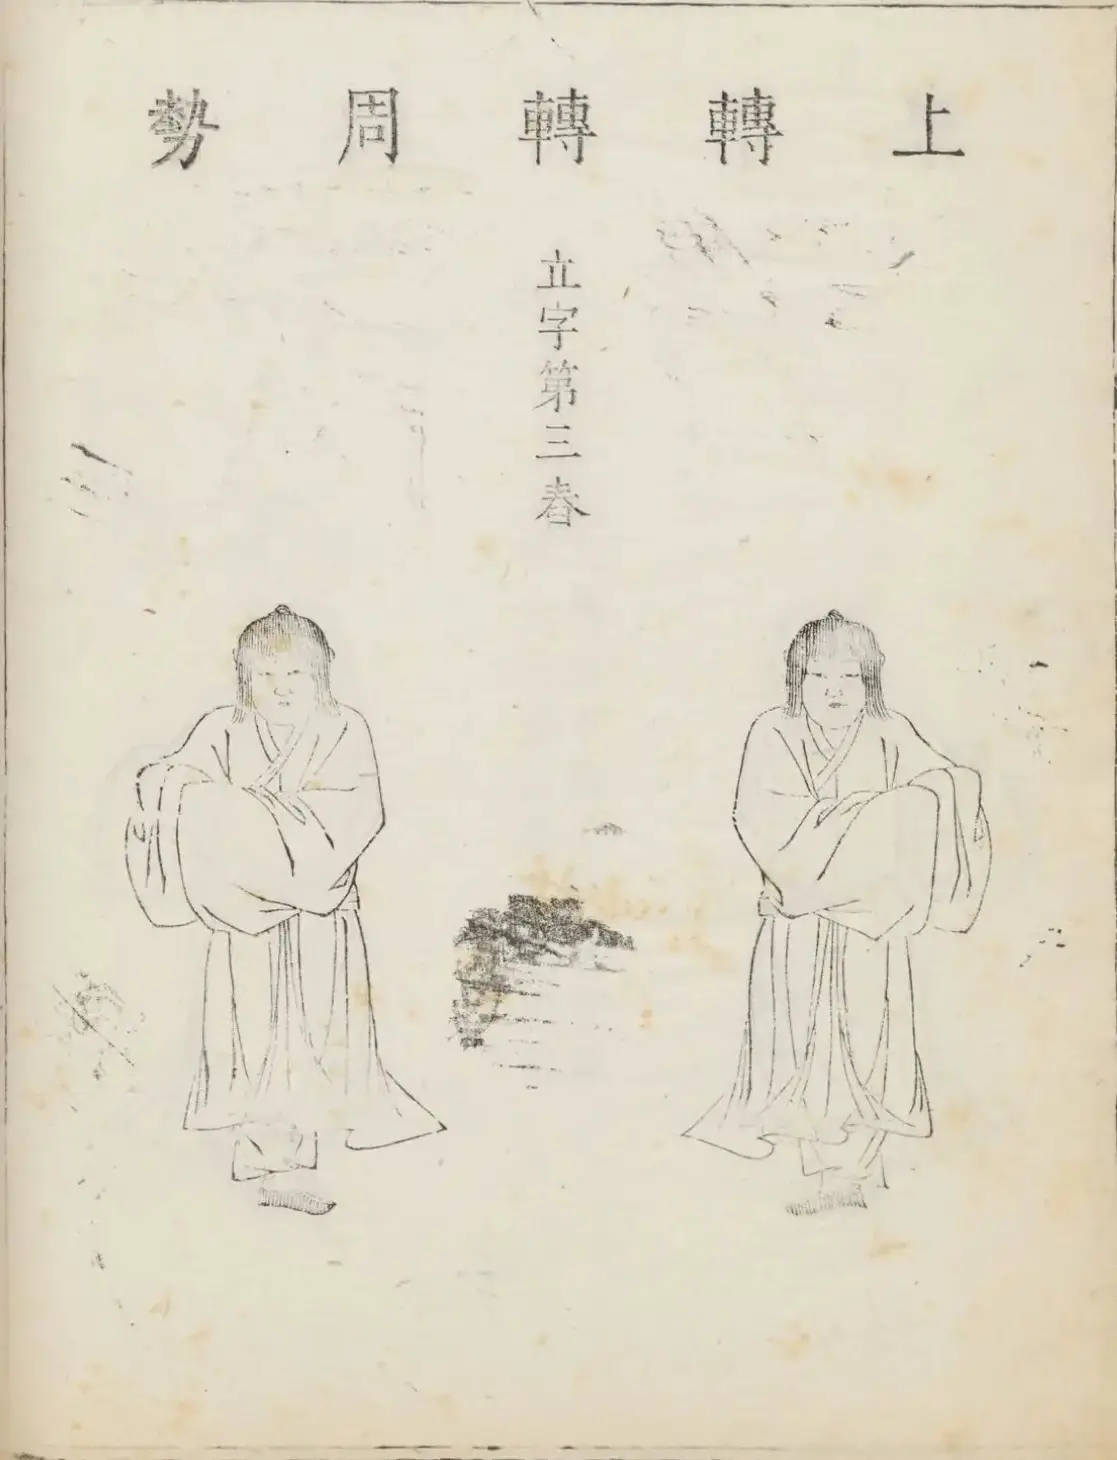 上轉轉周勢
立字第三舂